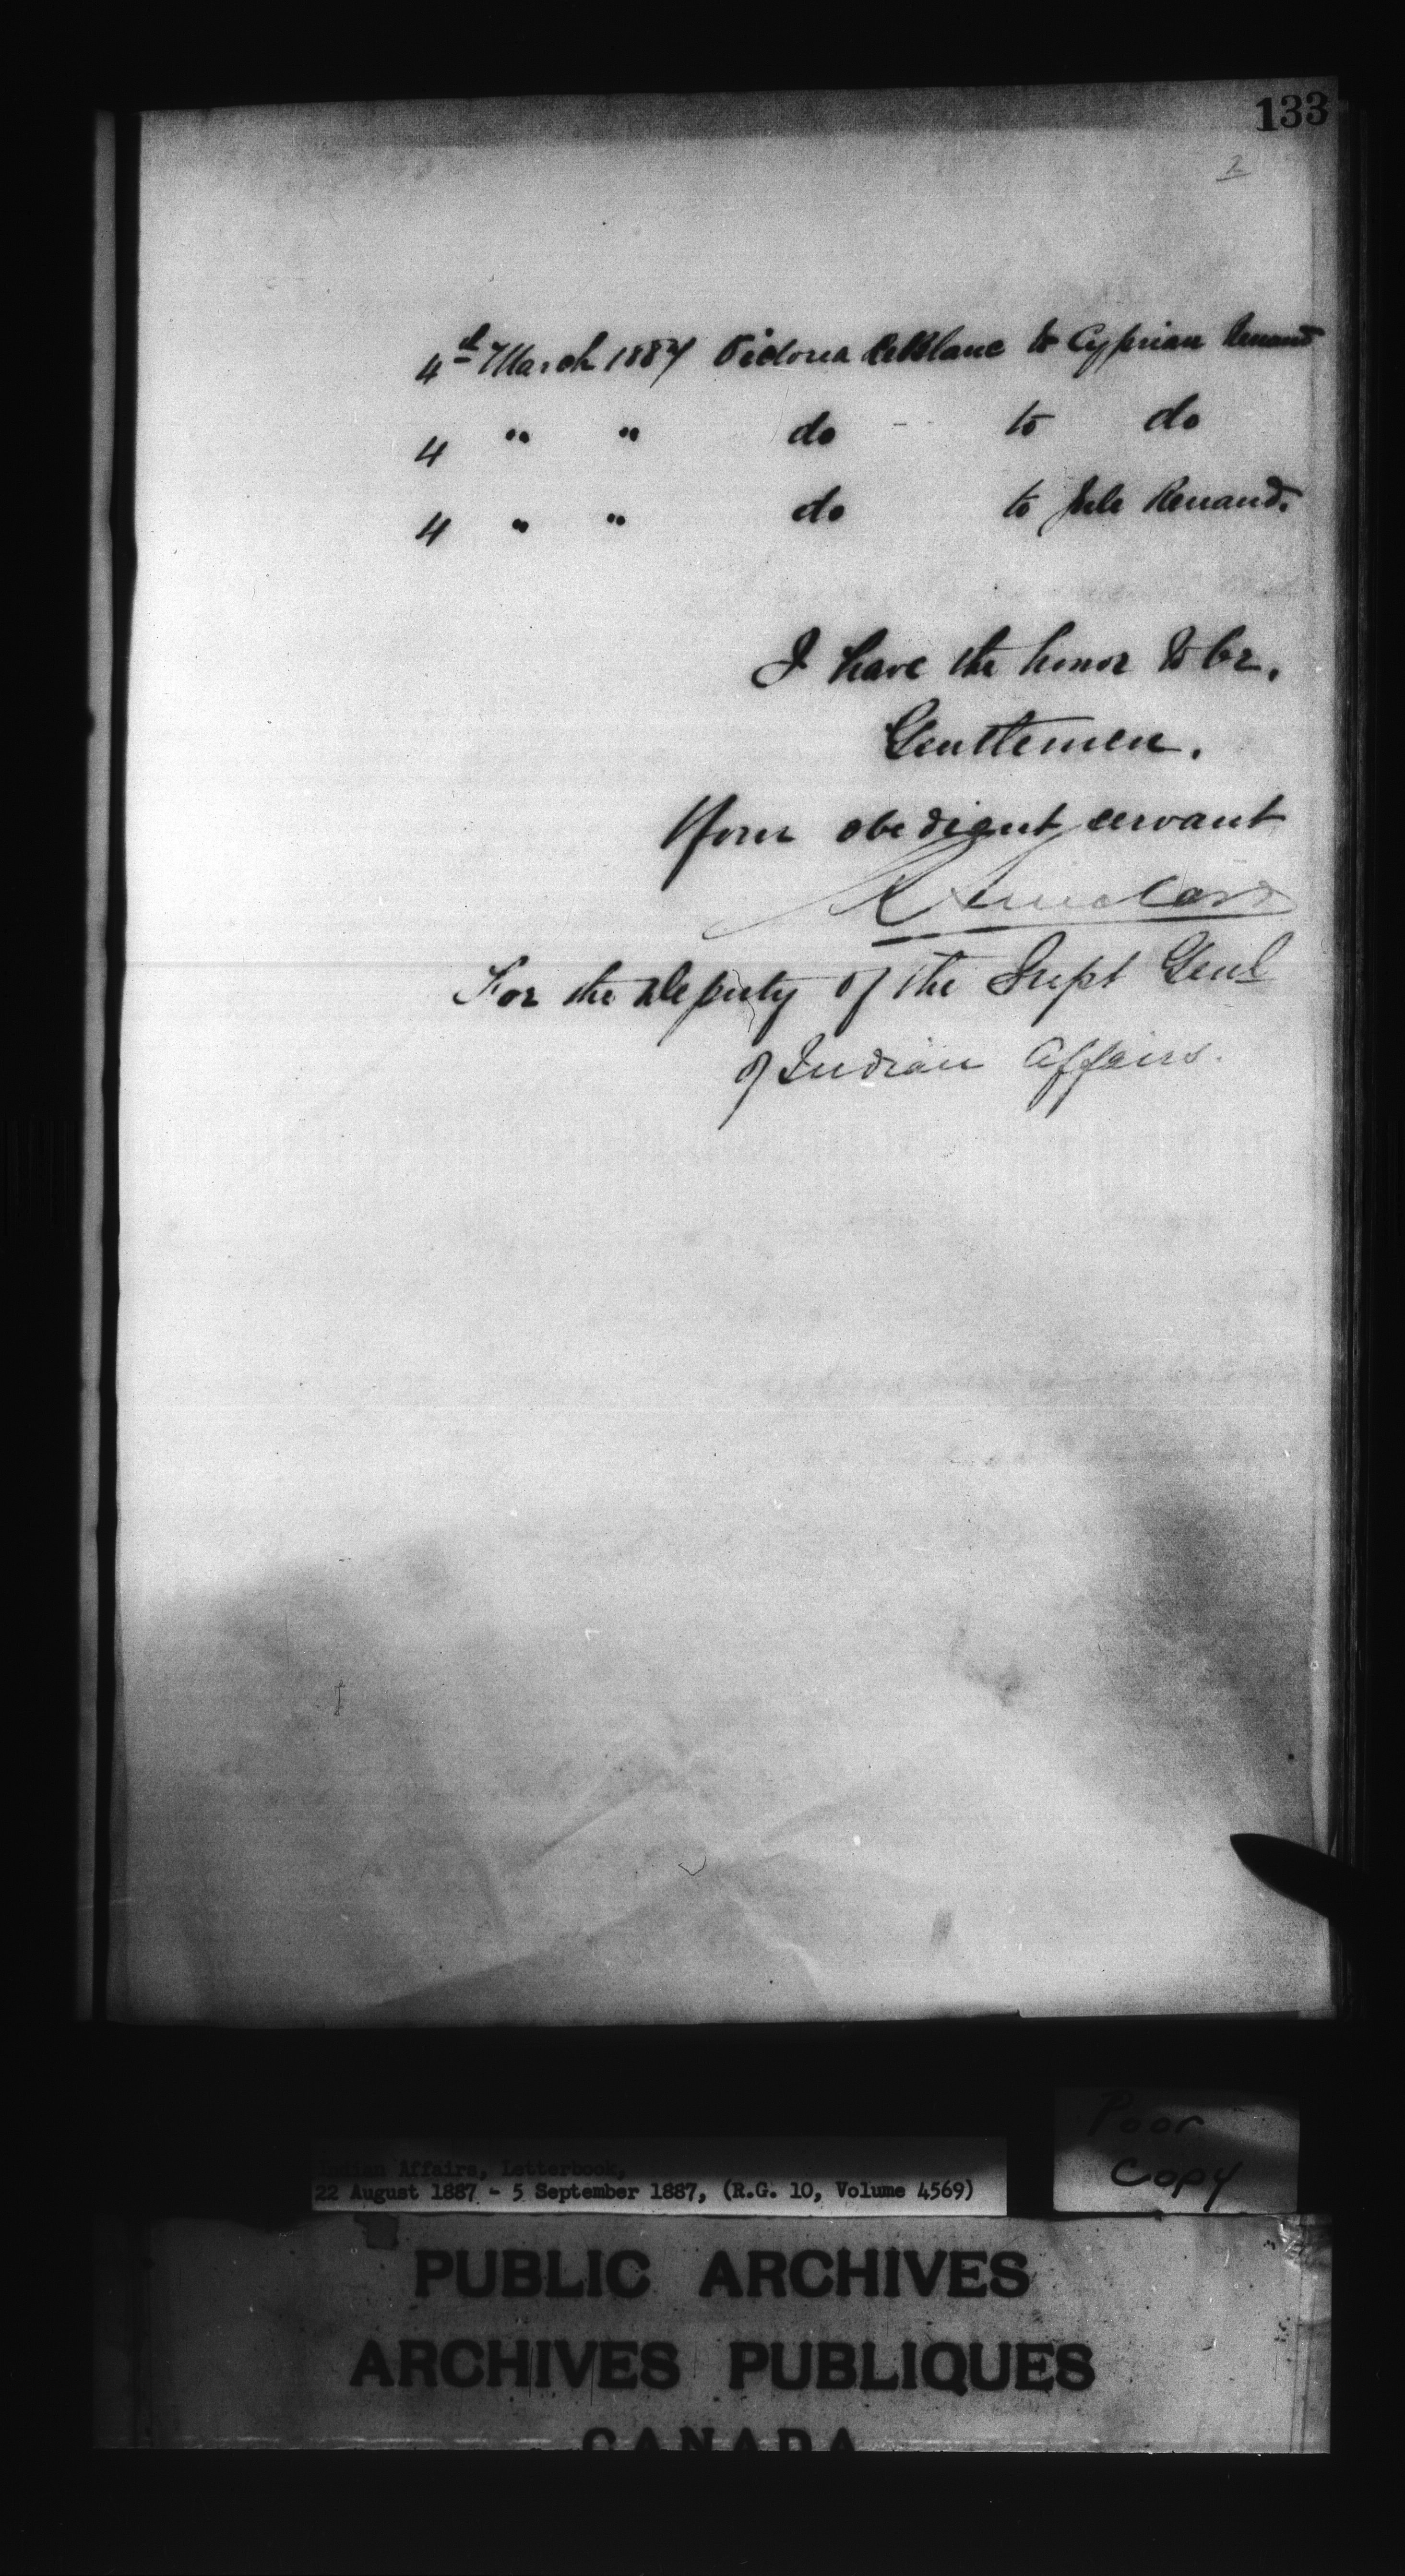 133
2
4th March 1887 Victoria LeBlanc to Cyprian Renaud
4 " " do to do
4 " " do to Jule Renaud.
I have the honor to be,
Gentlemen,
Your obedient servant
R Sinclair
For the Deputy of the Supt Genl
of Indian Affairs.
Poor
Copy
Indian Affairs, Letterbook,
22 August 1887 - 5 September 1887, (R.G. 10, Volume 4569)
PUBLIC ARCHIVES
ARCHIVES PUBLIQUES
CANADA